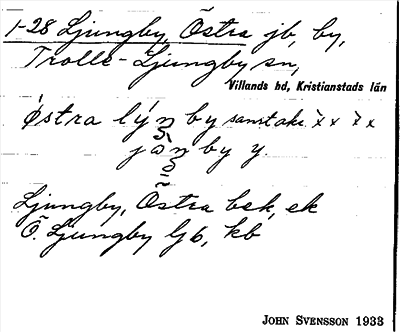 1-28 Ljungby, Östra jb, by,
Trolle-Ljungby sn,
Villands hd, Kristianstads län
östra lýn by samt aks. x̀ x x̀ x
jàn by y.
Ljungby, Östra bek, ek
Ö. Ljungby Gb, kb
JOHN SVENSSON 1933